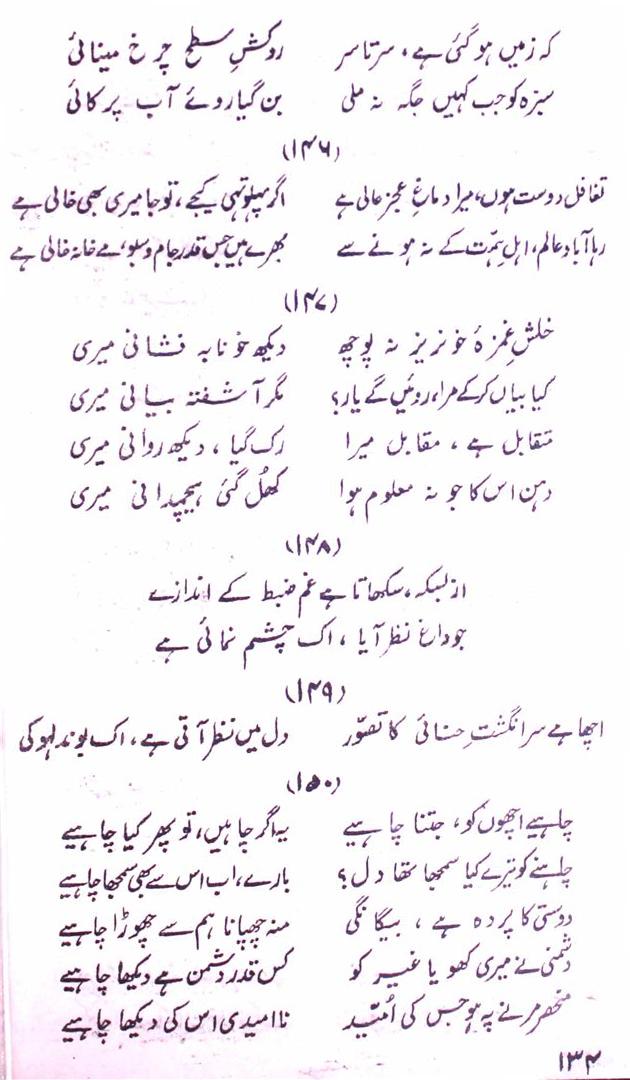 کہ زمیں ہو گئی ہے، سر تا سر روکشِ سطحِ چرخ مینائی
سبزہ کو جب کہیں جگہ نہ ملی بن گیا روئے آب پر کائی
(۱۴۶)
تغافل دوست ہوں، میرا دماغِ عجز عالی ہے اگر پہلو تہی کیجے، تو جا میری بھی خالی ہے
رہا آباد عالم، اہلِ ہمّت کے نہ ہونے سے بھرے ہیں جس قدر جام و سبو، مے خانہ خالی ہے
(۱۴۷)
خلشِ غمزۂ خونریز نہ پوچھ دیکھ خونابہ فشانی میری
کیا بیاں کر کے مرا، روئیں گے یار؟ مگر آشفتہ بیانی میری
متقابل ہے، مقابل میرا رک گیا، دیکھ روانی میری
دہن اس کا جو نہ معلوم ہوا کھُل گئی ہیچمدانی میری
(۱۴۸)
از بسکہ، سکھاتا ہے غم ضبط کے اندازے
جو داغ نظر آیا، اک چشم نمائی ہے
(۱۴۹)
اچھا ہے سر انگشتِ حنائی کا تصوّر دل میں نظر آتی ہے، اک بوند لہو کی
(۱۵۰)
چاہیے اچھوں کو، جتنا چاہیے یہ اگر چاہیں، تو پھر کیا چاہیے
چاہنے کو تیرے کیا سمجھا تھا دل؟ بارے، اب اس سے بھی سمجھا چاہیے
دوستی کا پردہ ہے، بیگانگی منہ چھپانا ہم سے چھوڑا چاہیے
دشمنی نے میری کھویا غیر کو کس قدر دشمن ہے دیکھا چاہیے
منحصر مرنے پہ ہو جس کی اُمّید نا امیدی اس کی دیکھا چاہیے
۱۳۴